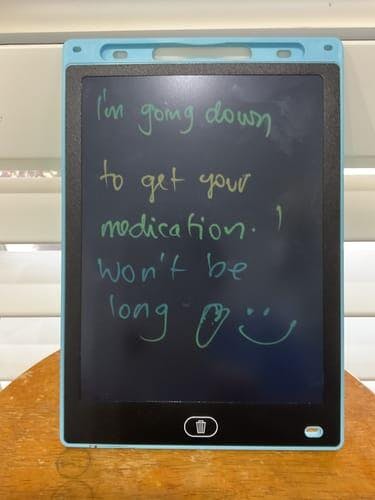 I'm going down
to get your
medication. I
won't be
long